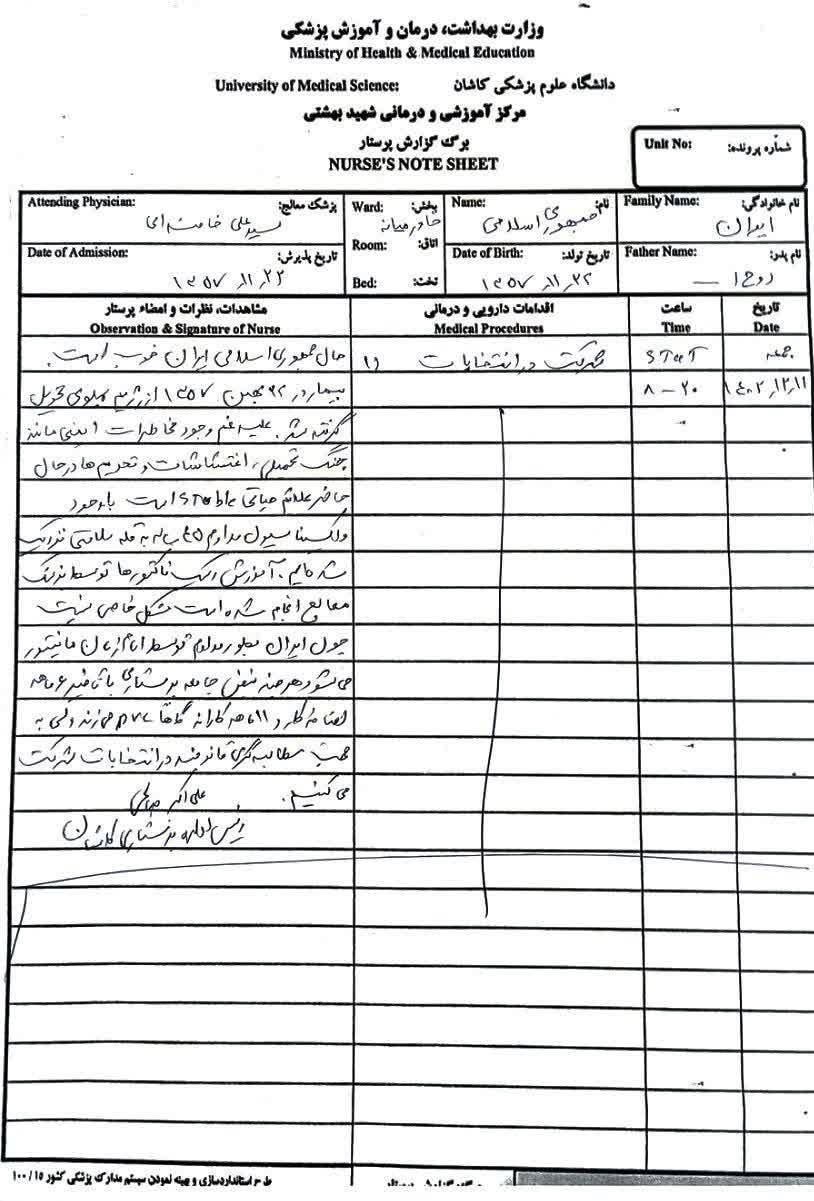 وزارت بهداشت، درمان و آموزش پزشکی
Ministry of Health & Medical Education
دانشگاه علوم پزشکی کاشان University of Medical Science:
مرکز آموزشی و درمانی شهید بهشتی
برگ گزارش پرستار
NURSE'S NOTE SHEET
شماره پرونده: Unit No:
نام خانوادگی: Family Name:
ایران
نام: Name:
جمهوری اسلامی
بخش: Ward:
خاورمیانه
پزشک معالج: Attending Physician:
سید علی خامنه ای
نام پدر: Father Name:
روح ا
تاریخ تولد: Date of Birth:
۱۳۵۷,۱۱,۲۲
اتاق: Room:
تخت: Bed:
تاریخ پذیرش: Date of Admission:
۱۳۵۷,۱۱,۲۲
تاریخ
Date
ساعت
Time
اقدامات دارویی و درمانی
Medical Procedures
مشاهدات، نظرات و امضاء پرستار
Observation & Signature of Nurse
جمعه
۱۴۰۲,۱۲,۱۱
STAT
۸ – ۲۰
۱) شرکت در انتخابات
حال جمهوری اسلامی ایران خوب است.
بیمار در ۲۲ بهمن ۱۳۵۷ از رژیم پهلوی تحویل
گرفته شد. علیرغم وجود مخاطرات ایمنی مانند
جنگ تحمیلی، اغتشاشات و تحریم ها در حال
حاضر علائم حیاتی stable است با وجود
واکسیناسیون مداوم ۴۵ ساله به قله سلامتی نزدیک
شده ایم. آموزش ریسک فاکتورها توسط پزشک
معالج انجام شده است مشکل خاصی نیست
چون ایران بطور مداوم توسط امام زمان مانیتور
می شود هرچند نبض جامعه پرستاری با تأخیر ۶ ماهه
اضافه کار و ۱۱ ماهه کارانه گاهاً PVC می زند ولی به
جهت مطالبه گری قانونمند در انتخابات شرکت
می کنیم.
علی اکبر
رئیس اداره پرستاری کاشان
طرح استانداردسازی و بهینه نمودن سیستم مدارک پزشکی کشور ۱۰۰/۱۵